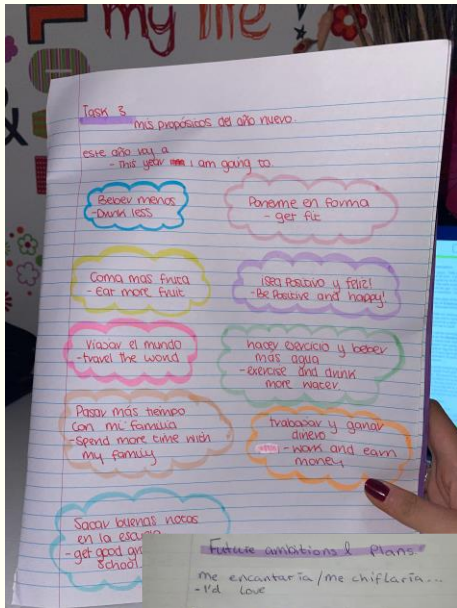 my life
Task 3
mis propósitos del año nuevo.
este año voy a
- This year i am going to.
Beber menos
- Drink less
Ponerme en forma
- get fit
Coma mas fruta
- Eat more fruit
¡Sea Positivo y feliz!
- Be Positive and happy!
Viajar el mundo
- travel the world
hacer ejercicio y beber
más agua
- exercise and drink
more water.
Pasar más tiempo
con mi familia
- Spend more time with
my family
trabajar y ganar
dinero
- work and earn
money
Sacar buenas notas
en la escu
- get good gr
school
Future ambitions & Plans.
me encantaría/me chiflaría...
- I'd love